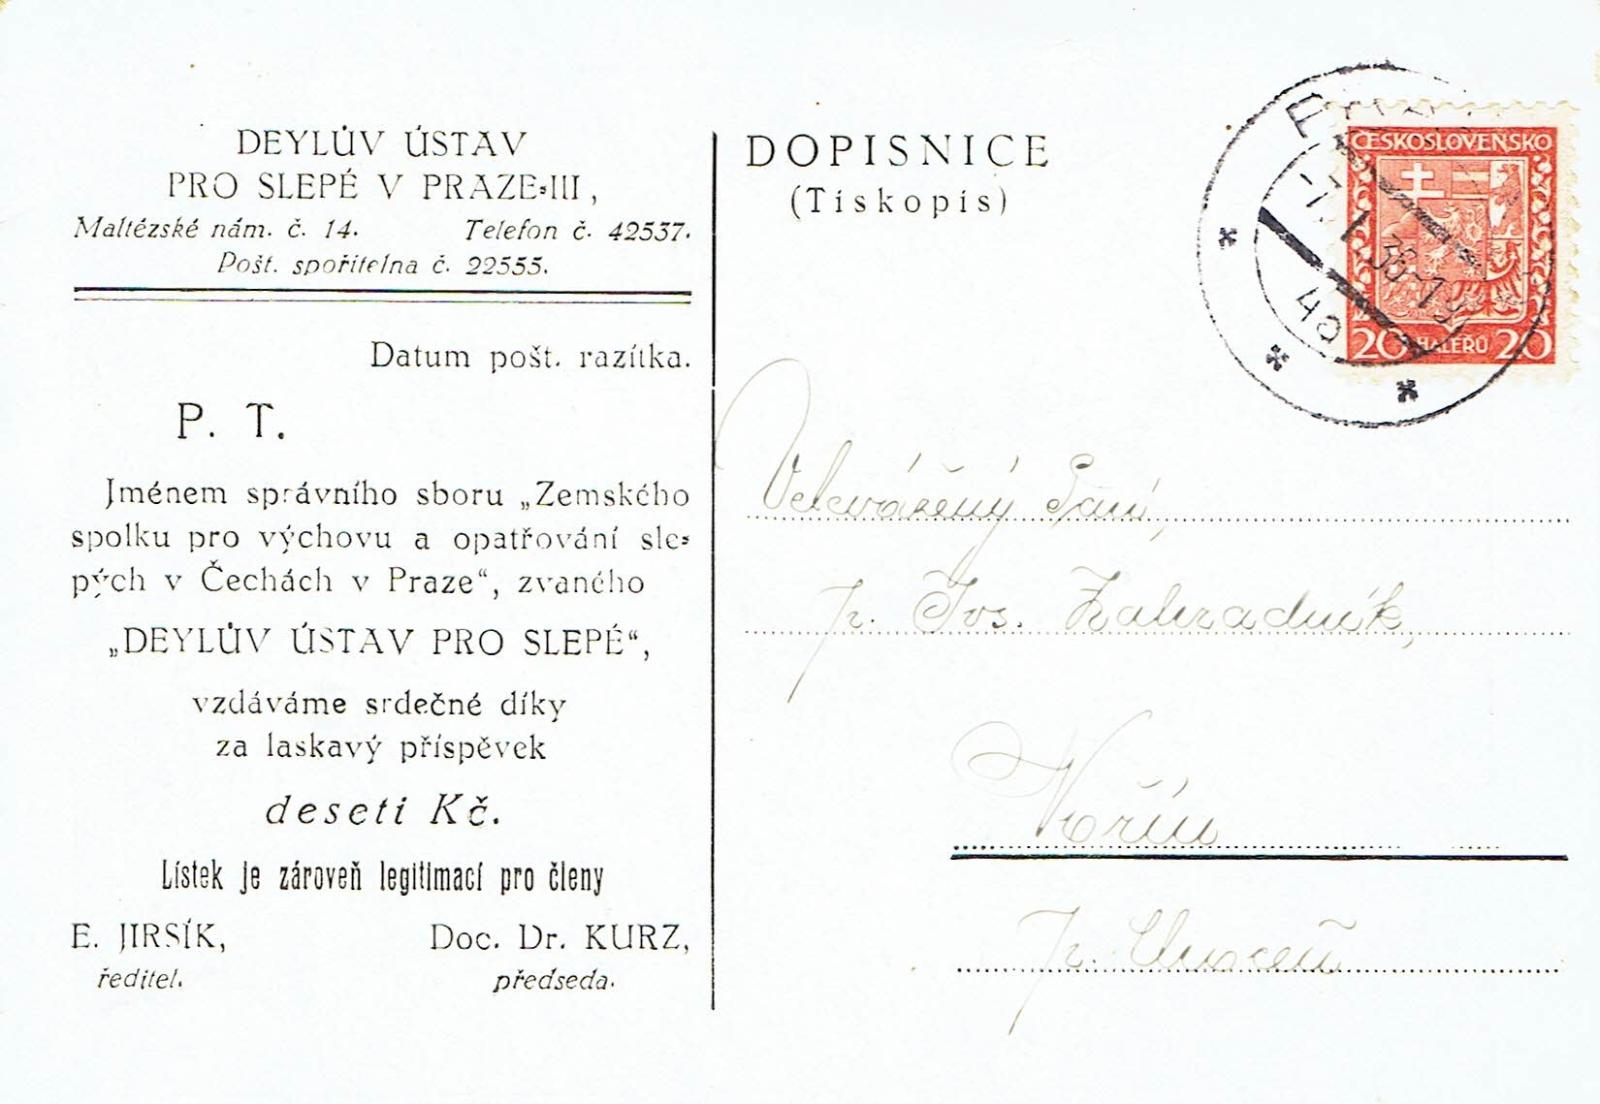 DEYLŮV ÚSTAV
PRO SLEPÉ V PRAZE-III,
Maltézské nám. č. 14. Telefon č. 42537.
Pošt. spořitelna č. 22555.
Datum pošt. razítka.
P. T.
Jménem správního sboru „Zemského
spolku pro výchovu a opatřování sle-
pých v Čechách v Praze“, zvaného
„DEYLŮV ÚSTAV PRO SLEPÉ“,
vzdáváme srdečné díky
za laskavý příspěvek
deseti Kč.
Lístek je zároveň legitimací pro členy
E. JIRSÍK, Doc. Dr. KURZ,
ředitel. předseda.
DOPISNICE
(Tiskopis)
ČESKOSLOVENSKO
20 HALÉŘŮ 20
Velevážený Paní,
p. Jos. Zahradník,
p.